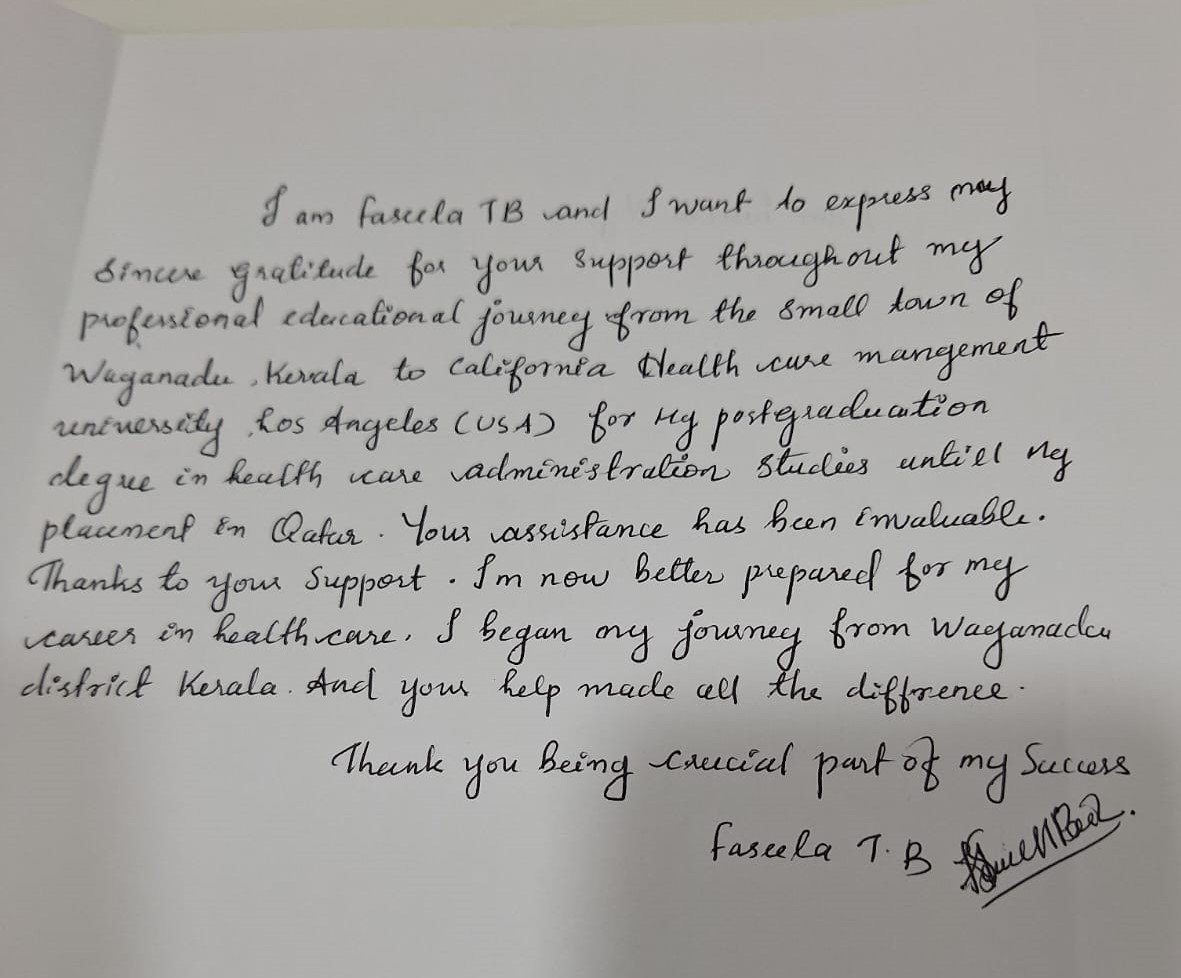 I am faseela TB and I want to express may
Sincere gratitude for your support throughout my
professional educational journey from the small town of
Wayanadu, Kerala to California Health care mangement
university, Los Angeles (USA) for My postgraduation
degree in health care administration studies untill My
placement in Qatar. Your assistance has been invaluable.
Thanks to your support. I'm now better prepared for my
career in health care. I began my journey from Wayanadu
district Kerala. And your help made all the diffrence.
Thank you being crucial part of my Success
faseela T.B